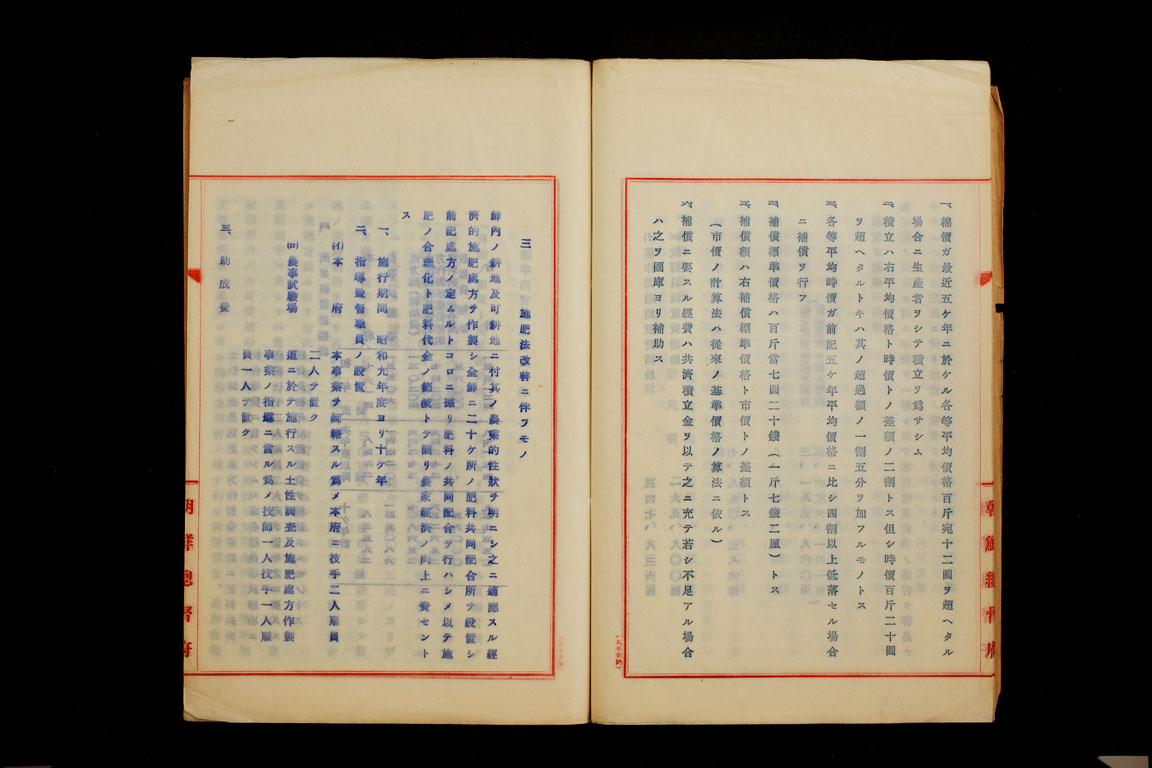 一、棉價ガ最近五ケ年ニ於ケル各等平均價格百斤宛十二圓ヲ超ヘタル
場合ニ生産者ヲシテ積立ヲ爲サシム
二、積立ハ右平均價格ト時價トノ差額ノ二割トス但シ時價百斤二十圓
ヲ超ヘタルトキハ其ノ超過額ノ一割五分ヲ加フルモノトス
三、各等平均時價ガ前記五ケ年平均價格ニ比シ四割以上低落セル場合
ニ補償ヲ行フ
四、補償標準價格ハ百斤當七圓二十錢(一斤七錢二厘)トス
五、補償額ハ右補償標準價格ト市價トノ差額トス
(市價ノ計算法ハ從來ノ基準價格ノ算法ニ依ル)
六、補償ニ要スル經費ハ共濟積立金ヲ以テ之ニ充テ若シ不足アル場合
ハ之ヲ國庫ヨリ補助ス
朝鮮總督府
三 施肥法改善ニ伴フモノ
鮮內ノ耕地及可耕地ニ付其ノ農業的性狀ヲ明ニシ之ニ適應スル經
濟的施肥處方ヲ作製シ全鮮ニ二十ケ所ノ肥料共同配合所ヲ設置シ
前記處方ノ定ムルトコロニ據リ肥料ノ共同配合ヲ行ハシメ以テ施
肥ノ合理化ト肥料代金ノ節減トヲ圖リ農家經濟ノ向上ニ資セント
ス
一、施行期間 昭和九年度ヨリ十ケ年
二、指導監督職員ノ設置
(イ)本府 本事業ヲ統轄スル爲メ本府ニ技手二人雇員
二人ヲ置ク
(ロ)農事試驗場 道ニ於テ施行スル土性調査及施肥處方作製
事業ノ指導ニ當ル爲メ技師一人技手一人雇
員一人ヲ置ク
三、助成費
朝鮮總督府